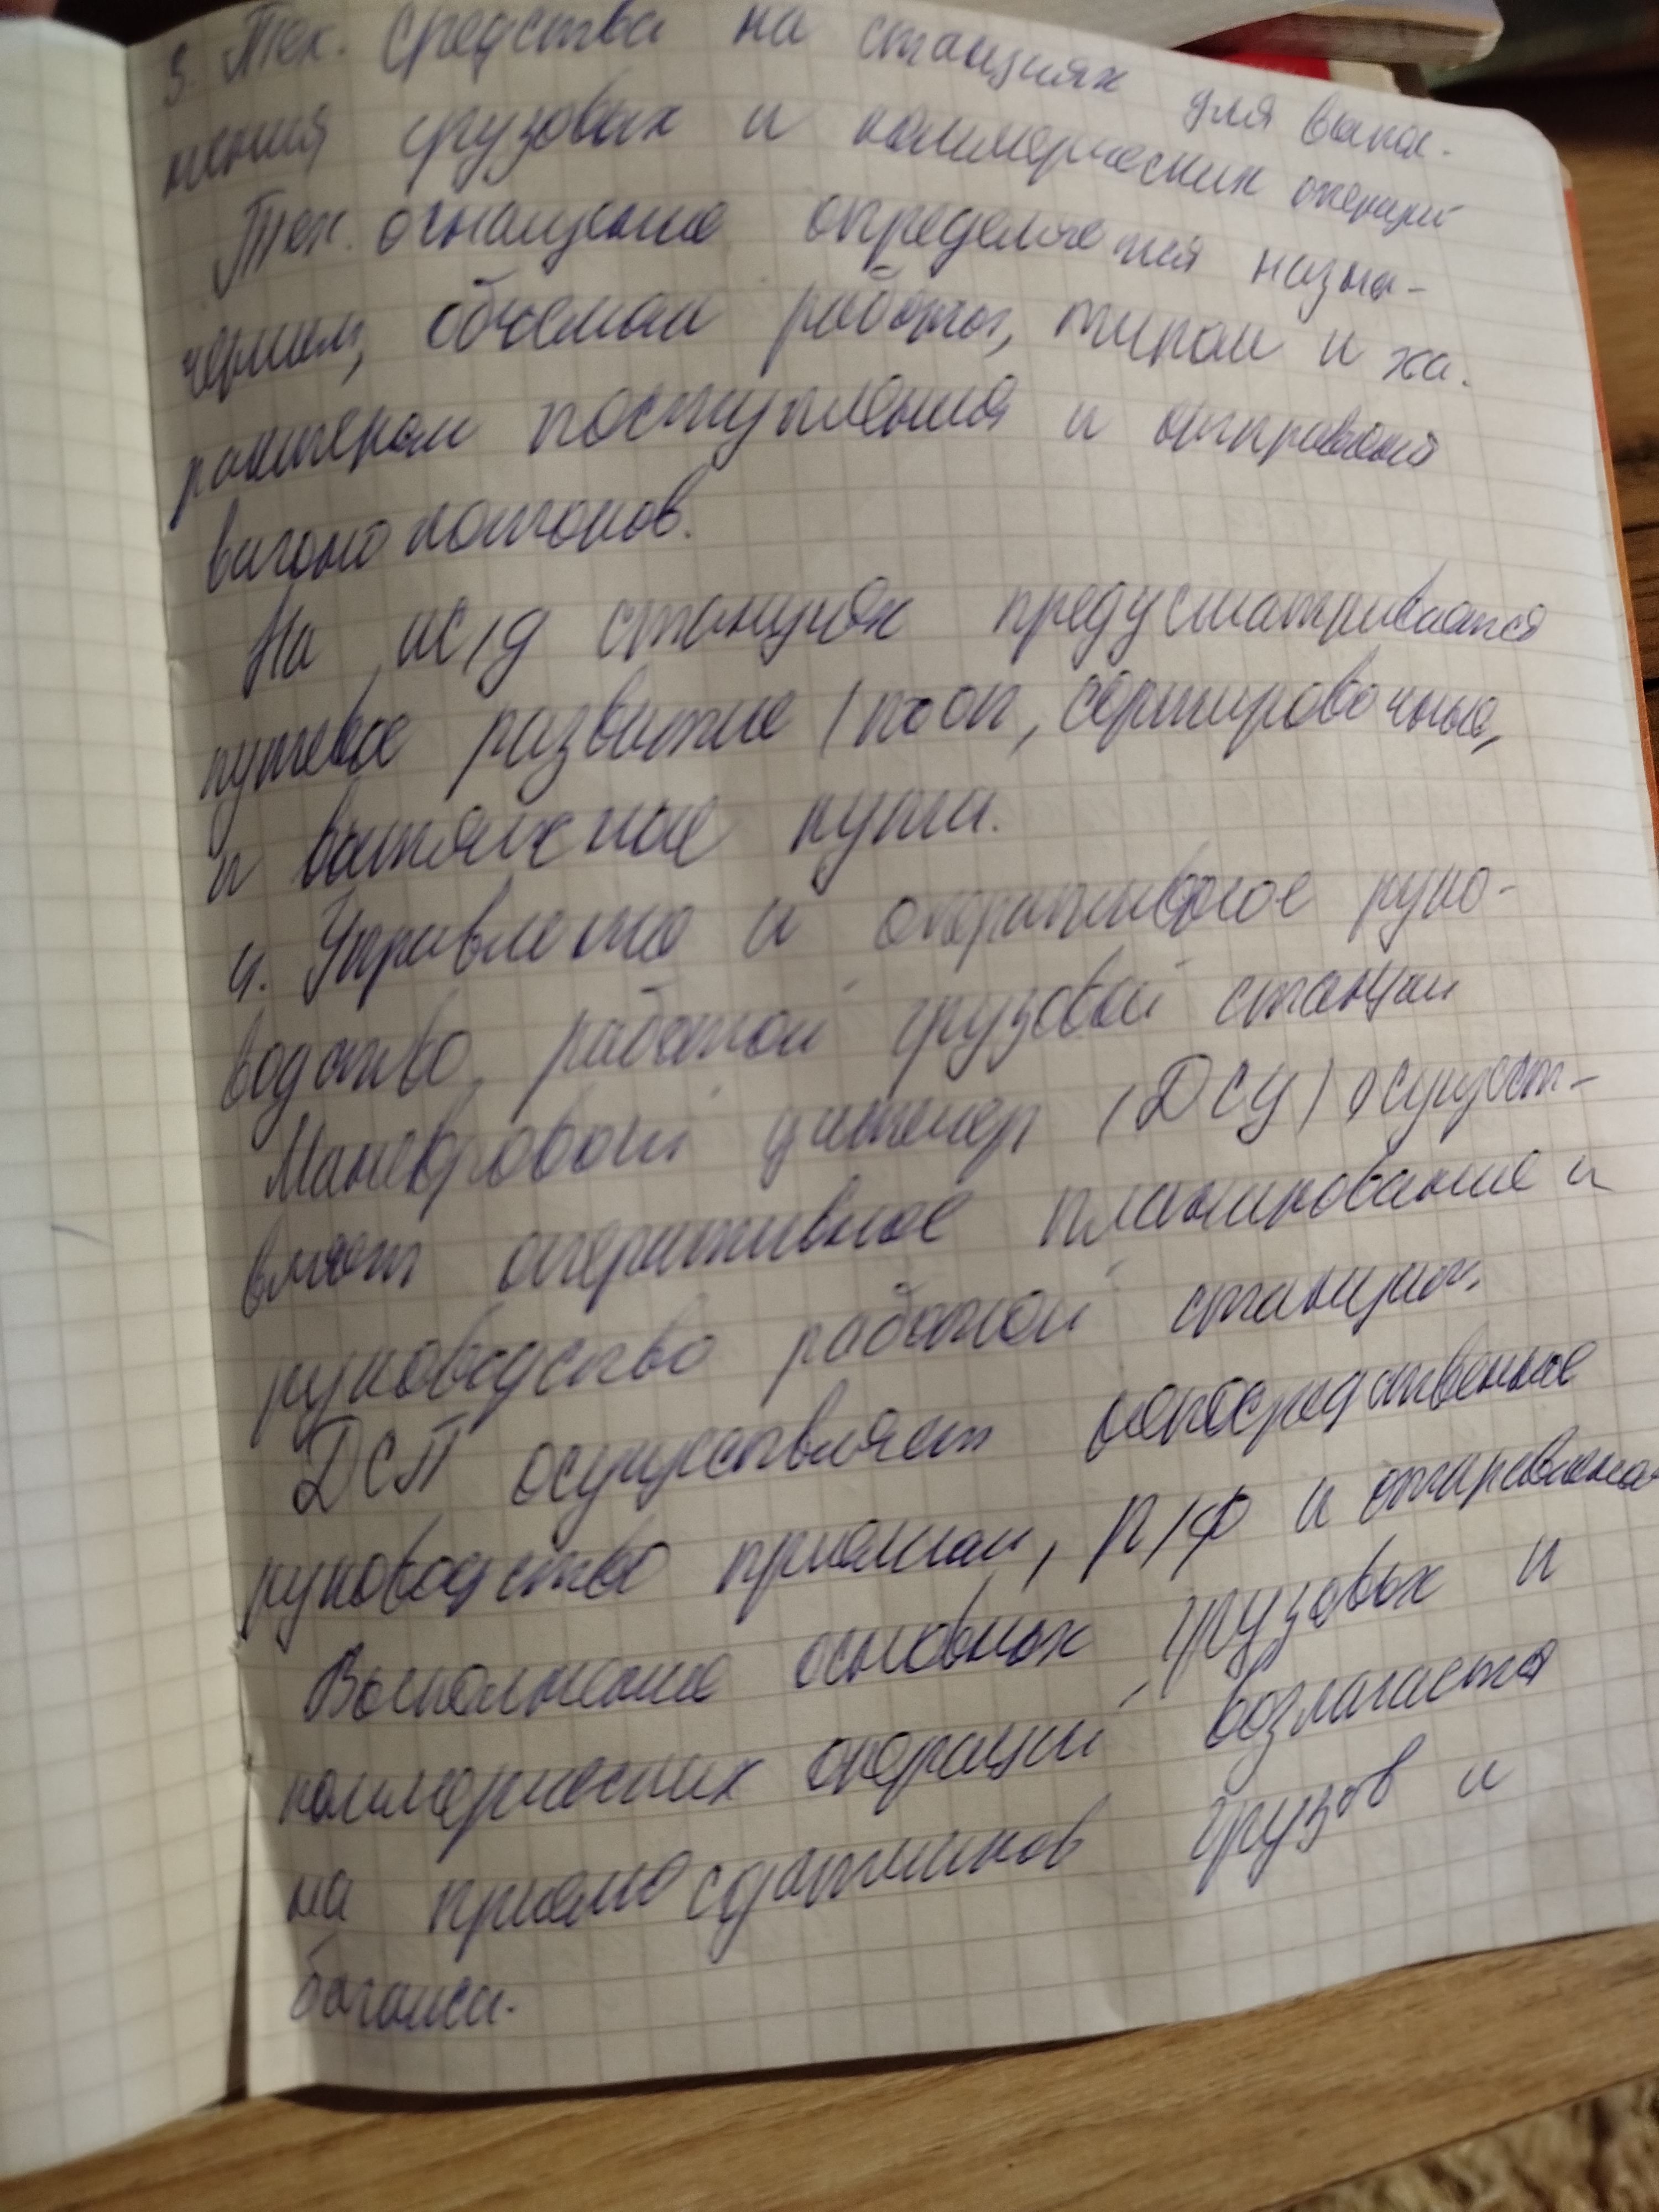 3. Тех. средства на станциях для выпол-
нения грузовых и коммерческих операций
Тех. оснащение определяется назна-
чением, объемом работы, типом и ха-
рактером поступления и отправления
вагонопотоков.
На ж/д станциях предусматривается
путевое развитие / сортировочные,
и вытяжные пути.
4. Управление и оперативное руко-
водство работой грузовой станции
Маневровый диспетчер (ДСЦ) осущест-
вляет оперативное планирование и
руководство работой станции.
ДСП осуществляет непосредственное
руководство приемом, Р/Ф и отправлением
Выполнение основных грузовых и
коммерческих операций возлагается
на приемосдатчиков грузов и
багажа.